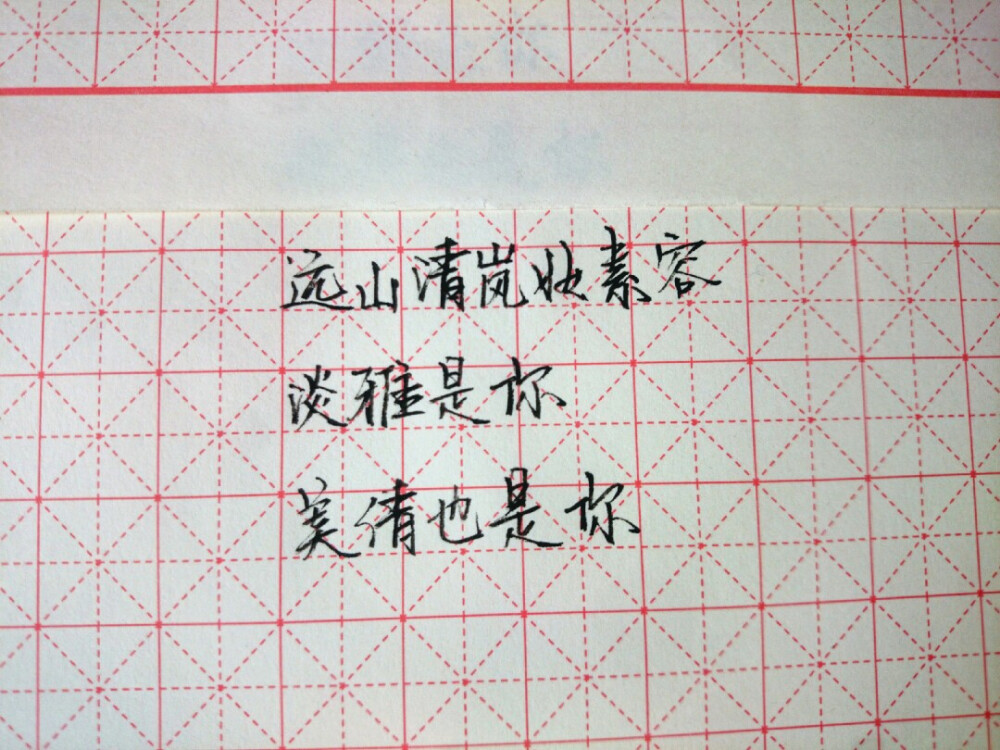 远山清岚妆素容
淡雅是你
倩也是你